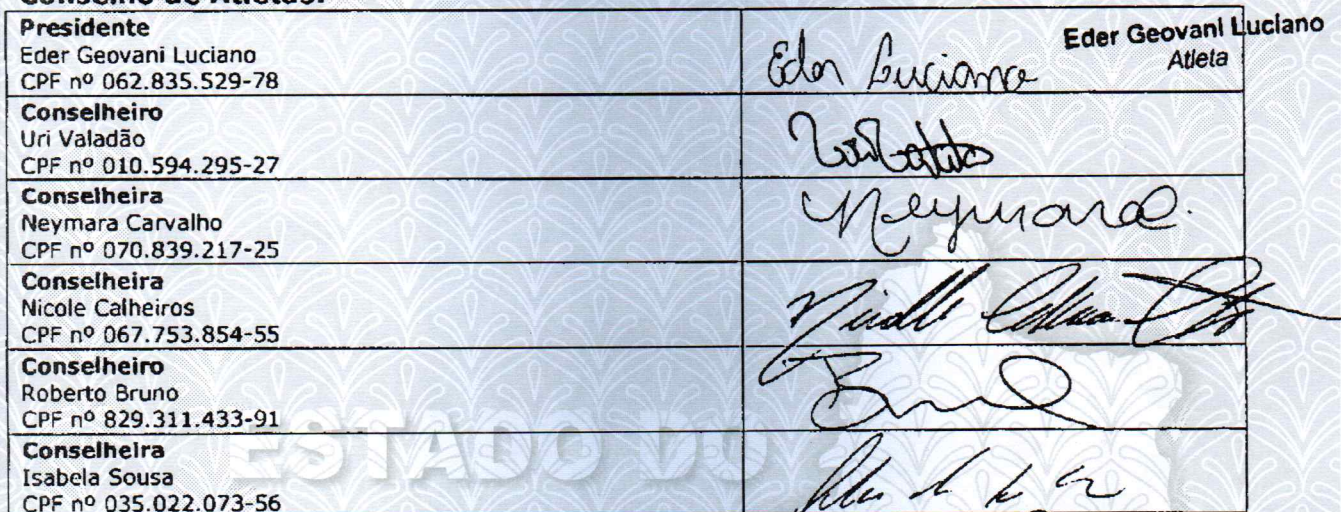 Conselho de Atletas:
Presidente
Eder Geovani Luciano
CPF nº 062.835.529-78
Eder Luciano
Eder Geovani Luciano
Atleta
Conselheiro
Uri Valadão
CPF nº 010.594.295-27
Conselheira
Neymara Carvalho
CPF nº 070.839.217-25
Neymara
Conselheira
Nicole Calheiros
CPF nº 067.753.854-55
Conselheiro
Roberto Bruno
CPF nº 829.311.433-91
Conselheira
Isabela Sousa
CPF nº 035.022.073-56
ESTADO DO